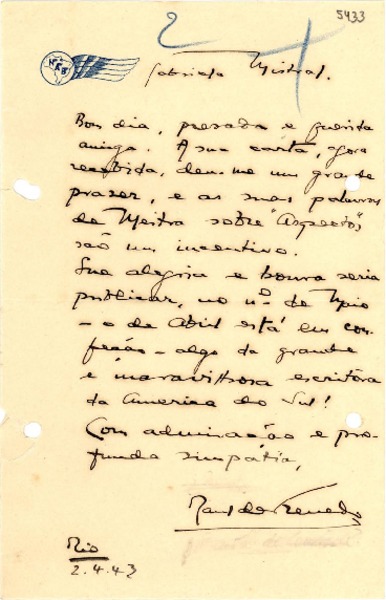 5433
2
Gabriela Mistral.
Bom dia, prezada e querida
amiga. A sua carta, agora
recebida, deu-me um grande
prazer, e as suas palavras
de Mestra sobre "Aspectos",
são um incentivo.
Sua alegria e honra seria
publicar, no nº de Maio
- o de Abril está em con-
feção - algo da grande
e maravilhosa escritora
da America do Sul!
Com admiração e pro-
funda simpatia,
Raul de Azevedo
Rio
2.4.43